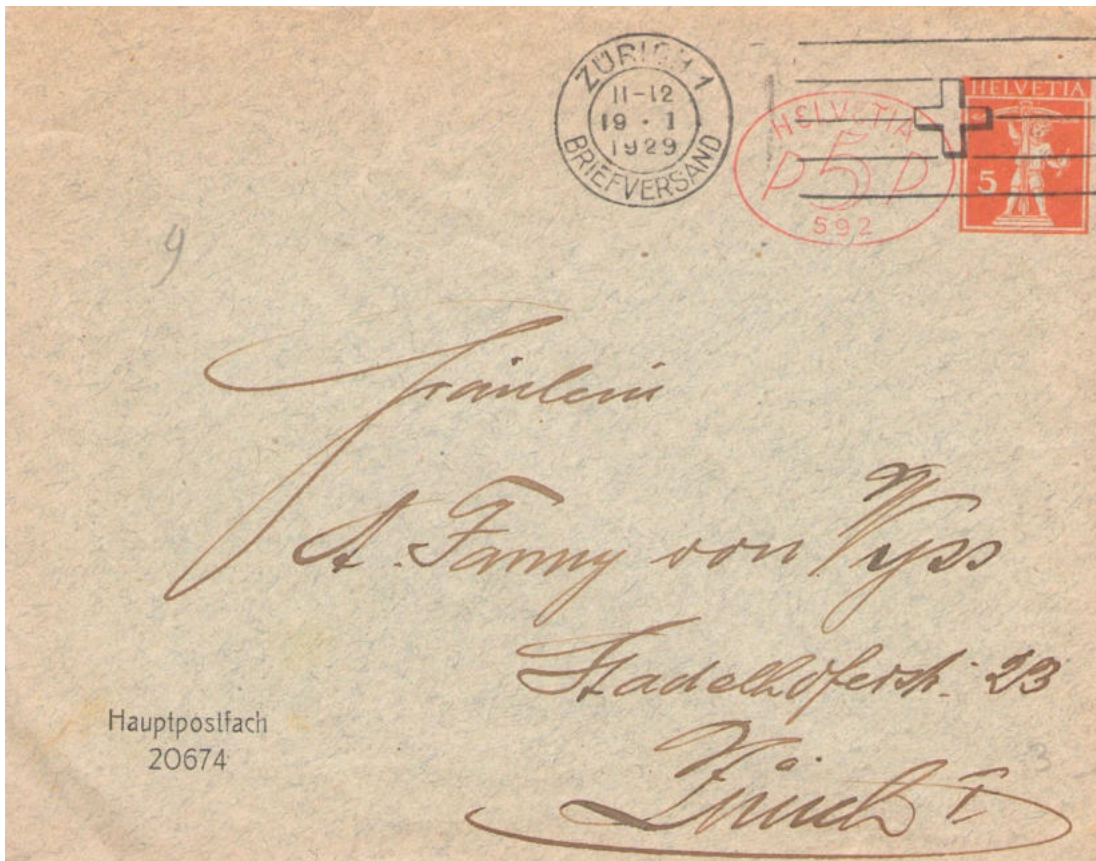 ZÜRICH 1
11-12
19 · I
1929
BRIEFVERSAND
HELVETIA
P 5 P
592
HELVETIA
5
9
Fräulein
A. Fanny von Wyss
Stadelhoferstr. 23
Zürich I
3
Hauptpostfach
20674